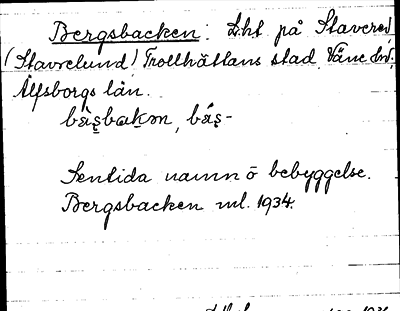 Bergsbacken: Lht på Stavered
(Stavrelund) Trollhättans stad Väne hd.
Älfsborgs län.
bàşbakən, báş-
Sentida namn å bebyggelse.
Bergsbacken ml. 1934.